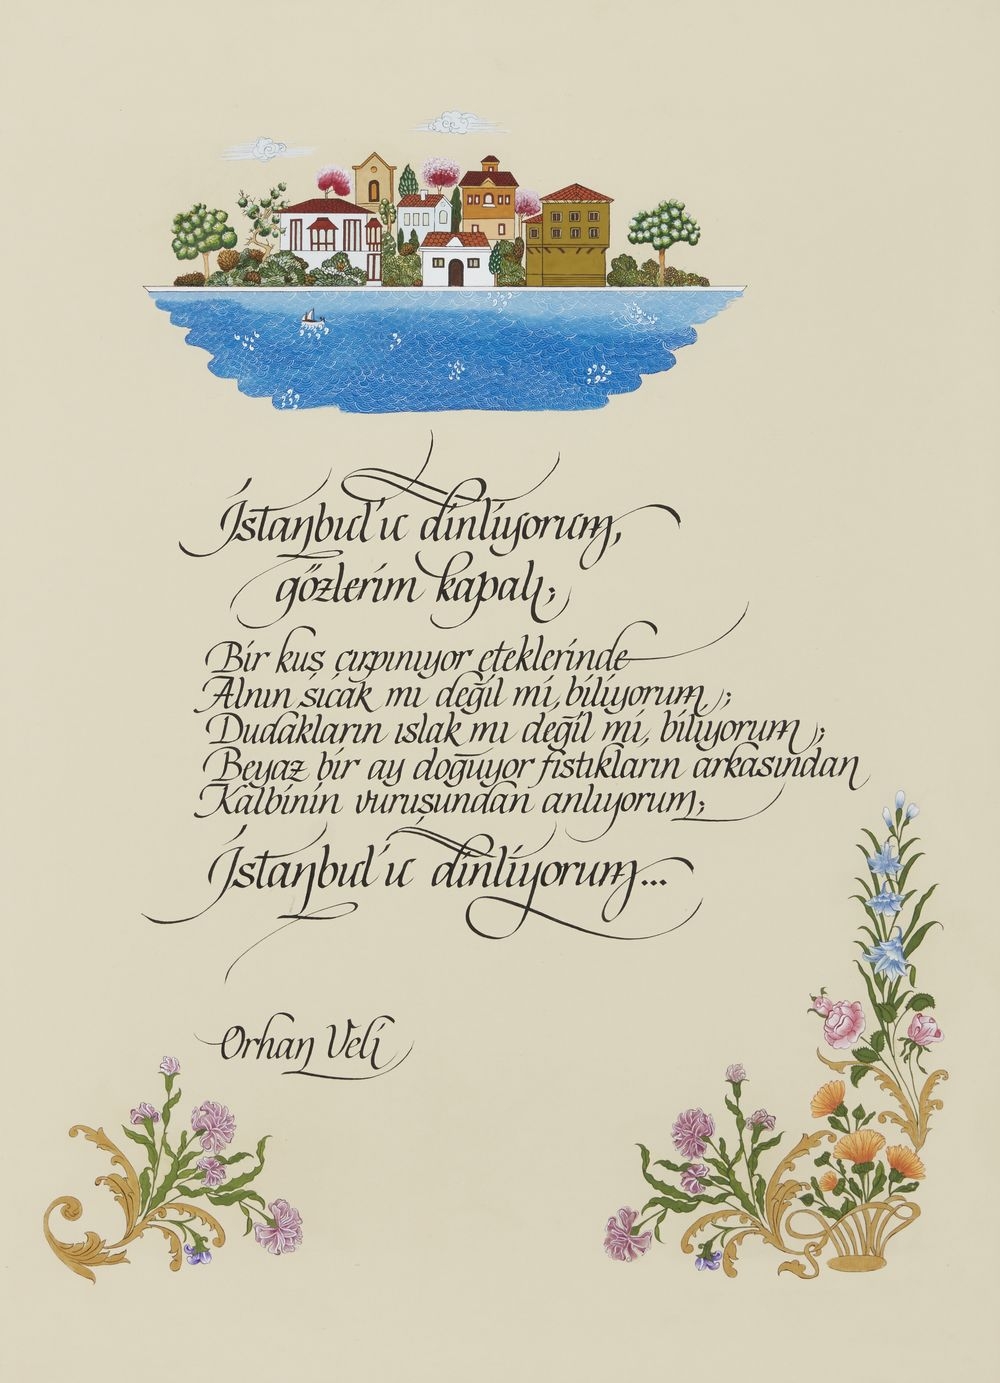 İstanbul'u dinliyorum,
gözlerim kapalı;
Bir kuş çırpınıyor eteklerinde
Alnın sıcak mı değil mi, biliyorum;
Dudakların ıslak mı değil mi, biliyorum;
Beyaz bir ay doğuyor fıstıkların arkasından
Kalbinin vuruşundan anlıyorum;
İstanbul'u dinliyorum...
Orhan Veli